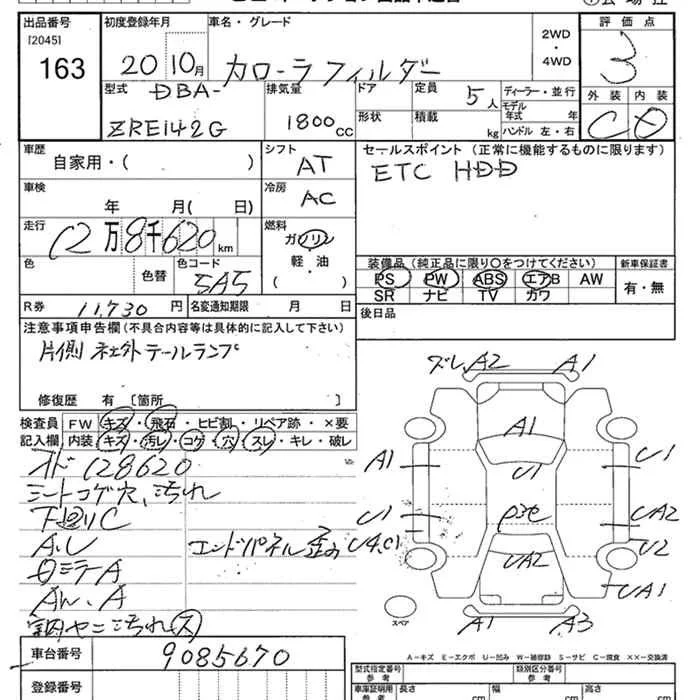 出品番号
[2045]
163
初度登録年月
20 10月
車名・グレード
カローラフィルダー
2WD
・
4WD
評価点
3
外装 内装
C D
型式
DBA-
ZRE142G
排気量
1800cc
ドア
形状
定員
5人
積載
kg
ディーラー・並行
モデル年式 年
ハンドル 左・右
車歴
自家用・( )
シフト
AT
車検
年 月( 日)
冷房
AC
走行
12万8千620km
燃料
ガソリン
軽・油
( )
色
色替
色コード
5A5
R券 11,730円
名変通知期限 月 日
セールスポイント(正常に機能するものに限ります)
ETC HDD
装備品(純正品に限り○をつけてください)
PS PW ABS エアB AW
SR ナビ TV カワ
新車保証書
有・無
後日品
注意事項申告欄(不具合内容等は具体的に記入して下さい)
片側 社外テールランプ
修復歴 有〔箇所 〕
検査員記入欄
FW キズ・飛石・ヒビ割・リペア跡・×要
内装 キズ・汚レ・コゲ・穴・スレ・キレ・破レ
メーター 128620
シートコゲ穴、汚れ
下廻りC
A.U
エンドパネル歪み
Aw.A
室内ヤニ汚れ(大)
ズレ,A2
A1
A1
A1
U1
U1
U1
U4.C1
UA2
UA2
U2
UA1
A1
A3
スペア
A-キズ E-エクボ U-凹み W-補修跡 S-サビ C-腐食 ××-交換済
車台番号
9085670
登録番号
型式指定番号
参考
類別区分番号
参考
車庫証明用
参考
長さ cm
幅 cm
高さ cm